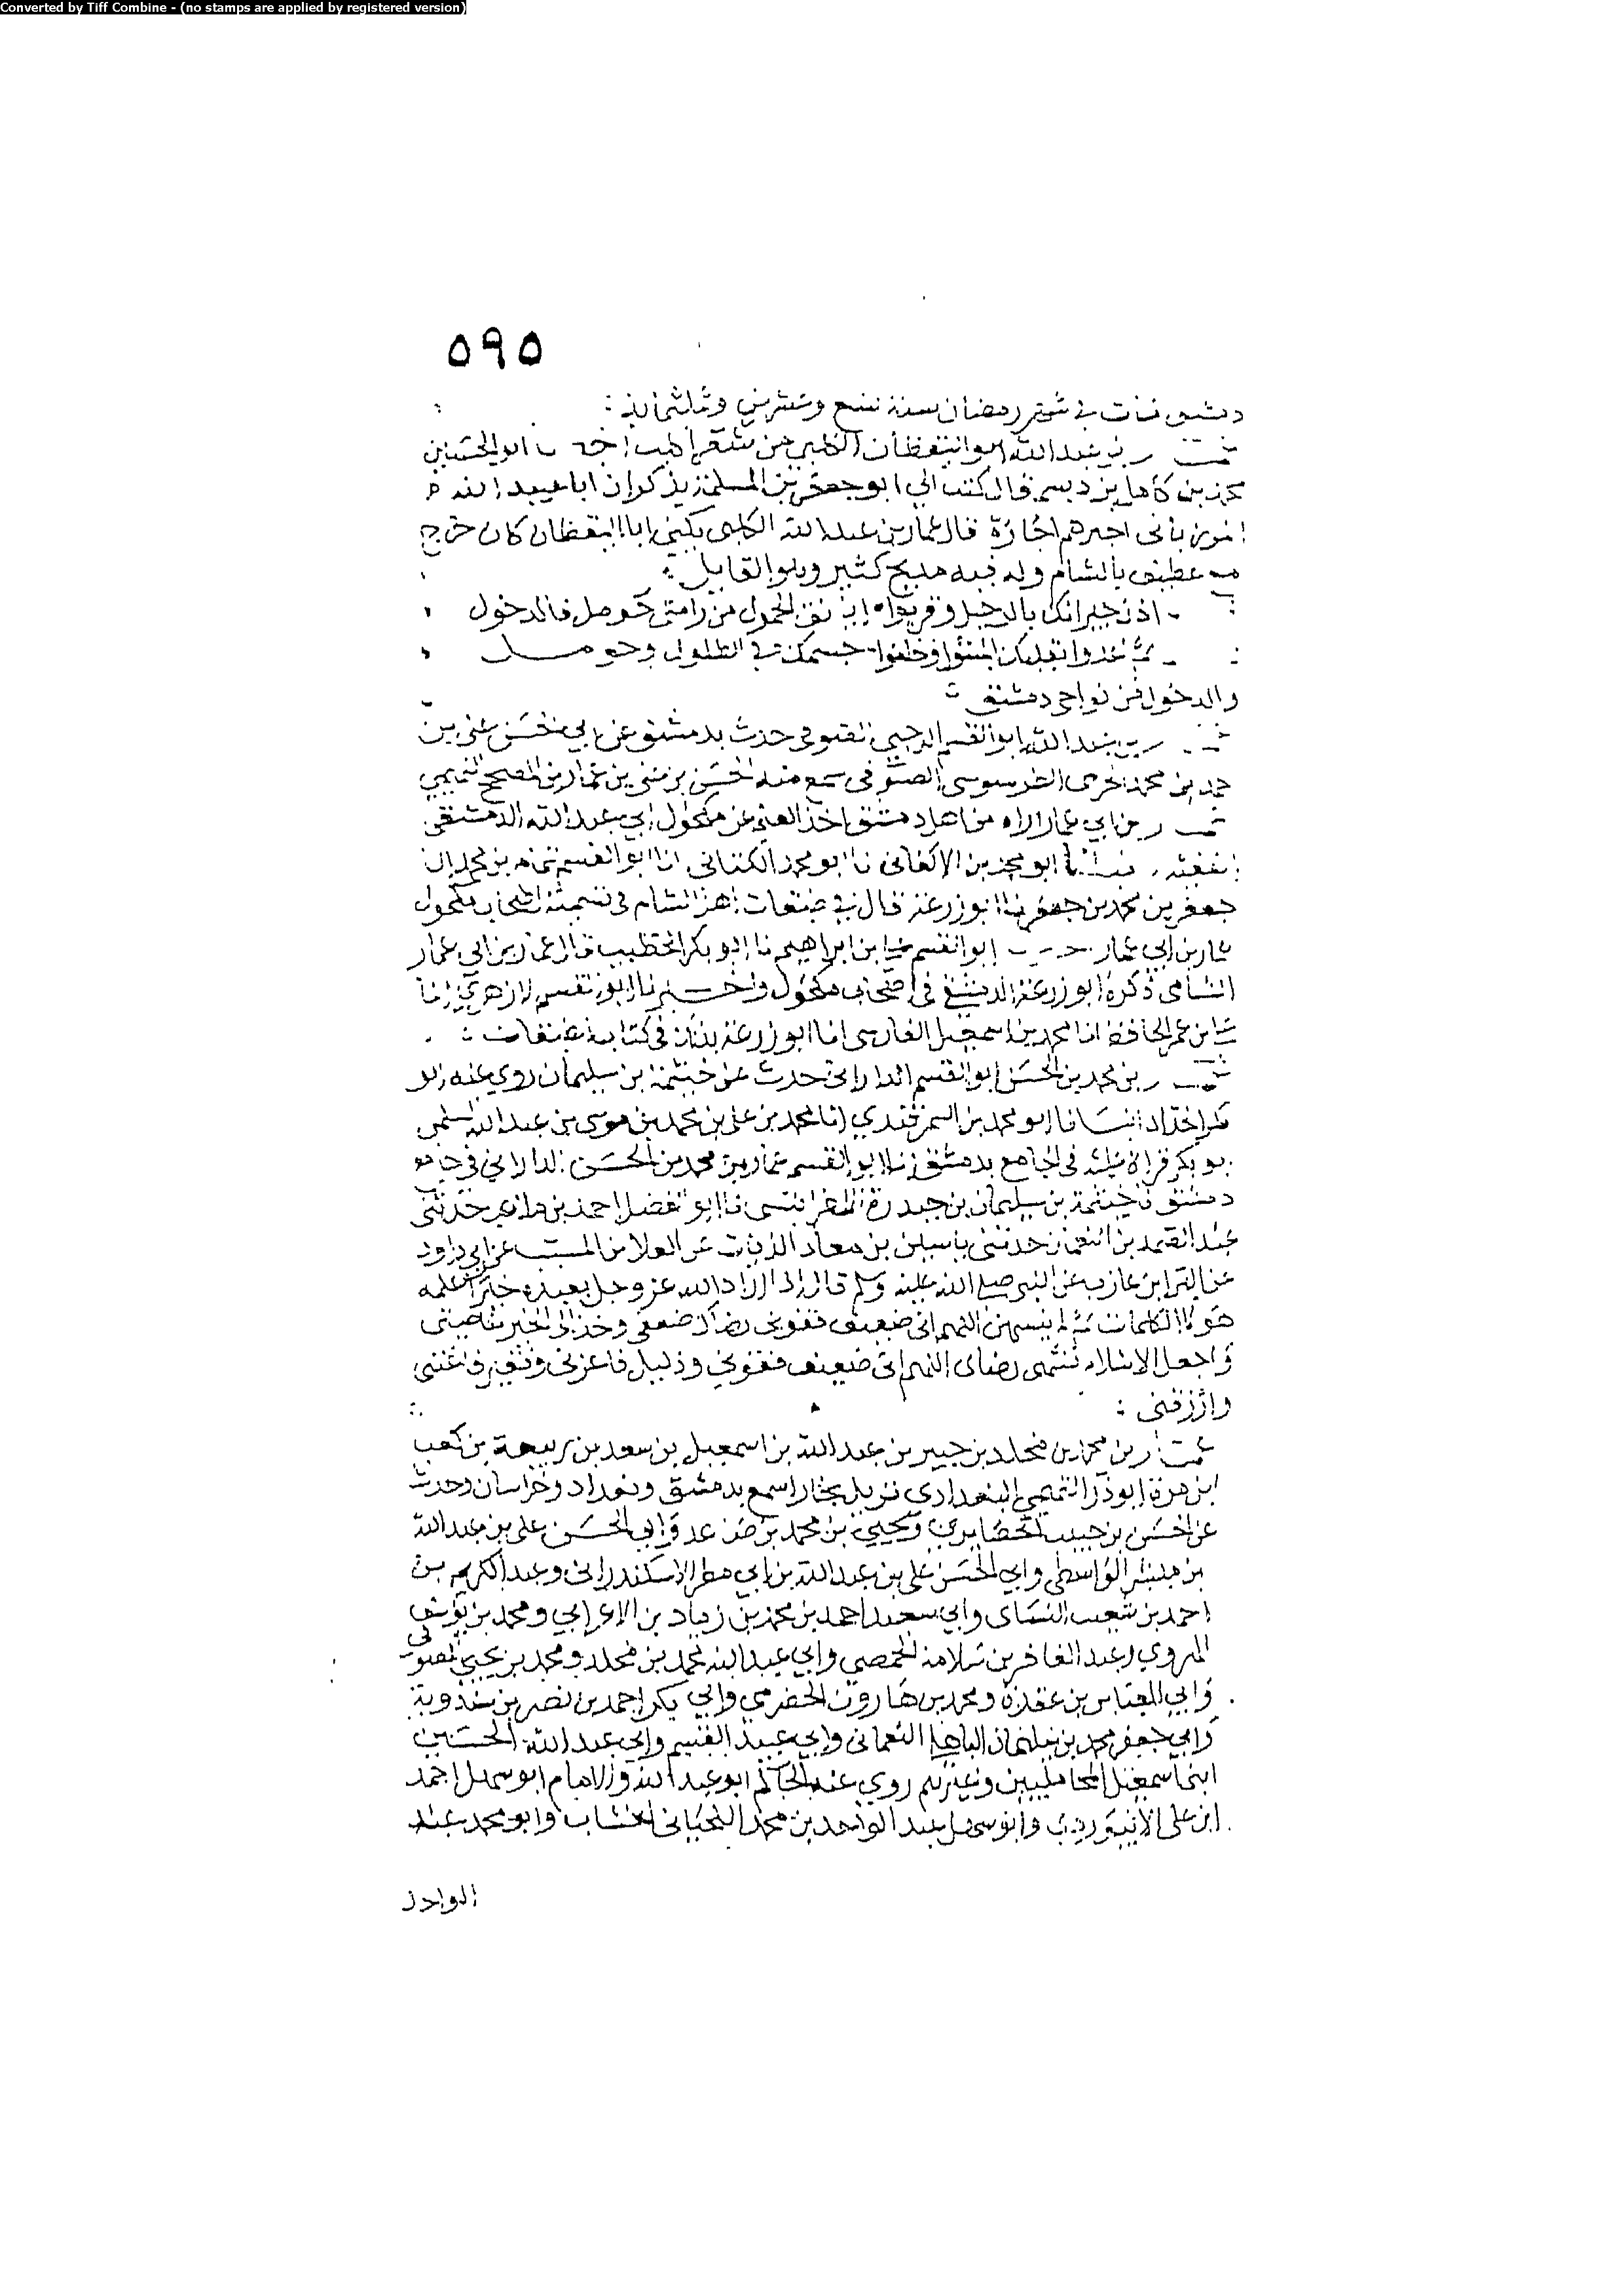 Converted by Tiff Combine - (no stamps are applied by registered version)
٥٩٥
دمشق فمات في شهر رمضان سنة تسع وعشرين وثلثمائة
بن عبد الله ابو اليقظان الكلبي من شعرا كلب ابو الحسين
محمد بن كامل بن ديسم قال كتب الي ابو جعفر بن المسلمة يذكر ان ابا عبيد الله
اجازة قال عمار بن عبد الله الكلبي يكنى ابا اليقظان كان خرج
بالشام وله فيه مديح كثير وهو القايل
جيرانك بالدخول من رامتي حومل فالدخول
جسمك في الطلول وحومل
والدخول من نواحي دمشق
بن عبد الله ابو القسم الرحبي الصوفي حدث بدمشق عن ابي الحسن علي بن
حمد بن محمد الطرسوسي الصوفي سمع منه الحسن بن التميمي
بن ابي عمار اراه من اهل دمشق اخذ العلم عن مكحول ابي عبد الله الدمشقي
ابو محمد بن الاكفاني نا ابو محمد الكتاني انا ابو القسم تمام بن محمد انا
جعفر بن محمد بن جعفر نا ابو زرعة قال في طبقات اهل الشام في تسمية اصحاب مكحول
عمار بن ابي عمار ابو القسم بن ابراهيم نا ابو بكر الخطيب قال عمار بن ابي عمار
الشامي ذكره ابو زرعة الدمشقي في اصحاب مكحول ابو القسم الازهري انا
بن عمر الحافظ انا محمد بن اسمعيل الفارسي انا ابو زرعة بذلك في كتاب الطبقات
بن محمد بن الحسن ابو القسم الداراني حدث عن خيثمة بن سليمان روى عنه ابو
بكر الحداد انبانا ابو محمد بن السمرقندي انا محمد بن علي بن محمد بن موسى بن عبد الله السلمي
ابو بكر قراة عليه في الجامع بدمشق نا ابو القسم عمار بن محمد بن الحسن الداراني في جامع
دمشق نا خيثمة بن سليمان بن حيدرة الطرابلسي نا ابو الفضل احمد بن حدثني
عبد الصمد بن النعمان حدثني ياسين بن معاذ الزيات عن العلا بن المسيب عن ابي داود
عن البرا بن عازب عن النبي صلى الله عليه وسلم قال اذا اراد الله عز وجل بعبده خيرا علمه
هولا الكلمات ثم لم ينسهن اللهم اني ضعيف فقوني رضاك ضعفي وخذ الى الخير بناصيتي
واجعل الاسلام منتهى رضاي اللهم اني ضعيف فقوني وذليل فاعزني وفقير فاغنني
وارزقني
عمار بن محمد بن مخلد بن جبير بن عبد الله بن اسمعيل بن سعد بن ربيعة بن كعب
ابن مرة ابو ذر التميمي البغدادي نزيل بخارا سمع بدمشق وبغداد وخراسان وحدث
عن الحسن بن حبيب الحصايري ويحيى بن محمد بن صاعد وابي الحسن علي بن عبد الله
بن مبشر الواسطي وابي الحسن علي بن عبد الله بن ابي مطر الاسكندراني وعبد الكريم بن
احمد بن شعيب النساي وابي سعيد احمد بن محمد بن زياد بن الاعرابي ومحمد بن يوسف
الهروي وعبد الغافر بن سلامة الحمصي وابي عبد الله محمد بن مخلد ومحمد بن يحيى الصولي
وابي العباس بن عقدة ومحمد بن هارون الحضرمي وابي بكر احمد بن نصر بن سندويه
وابي جعفر محمد بن سليمان الباهلي النعماني وابي عبيد القسم وابي عبد الله الحسين
ابني اسمعيل المحامليين وغيرهم روى عنه الحاكم ابو عبد الله والامام ابو سهل احمد
ابن علي الابيوردي وابو سهل عبد الواحد بن محمد اللحياني الخشاب وابو محمد عبد
الواحد